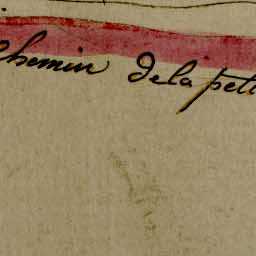 Chemin de la peti